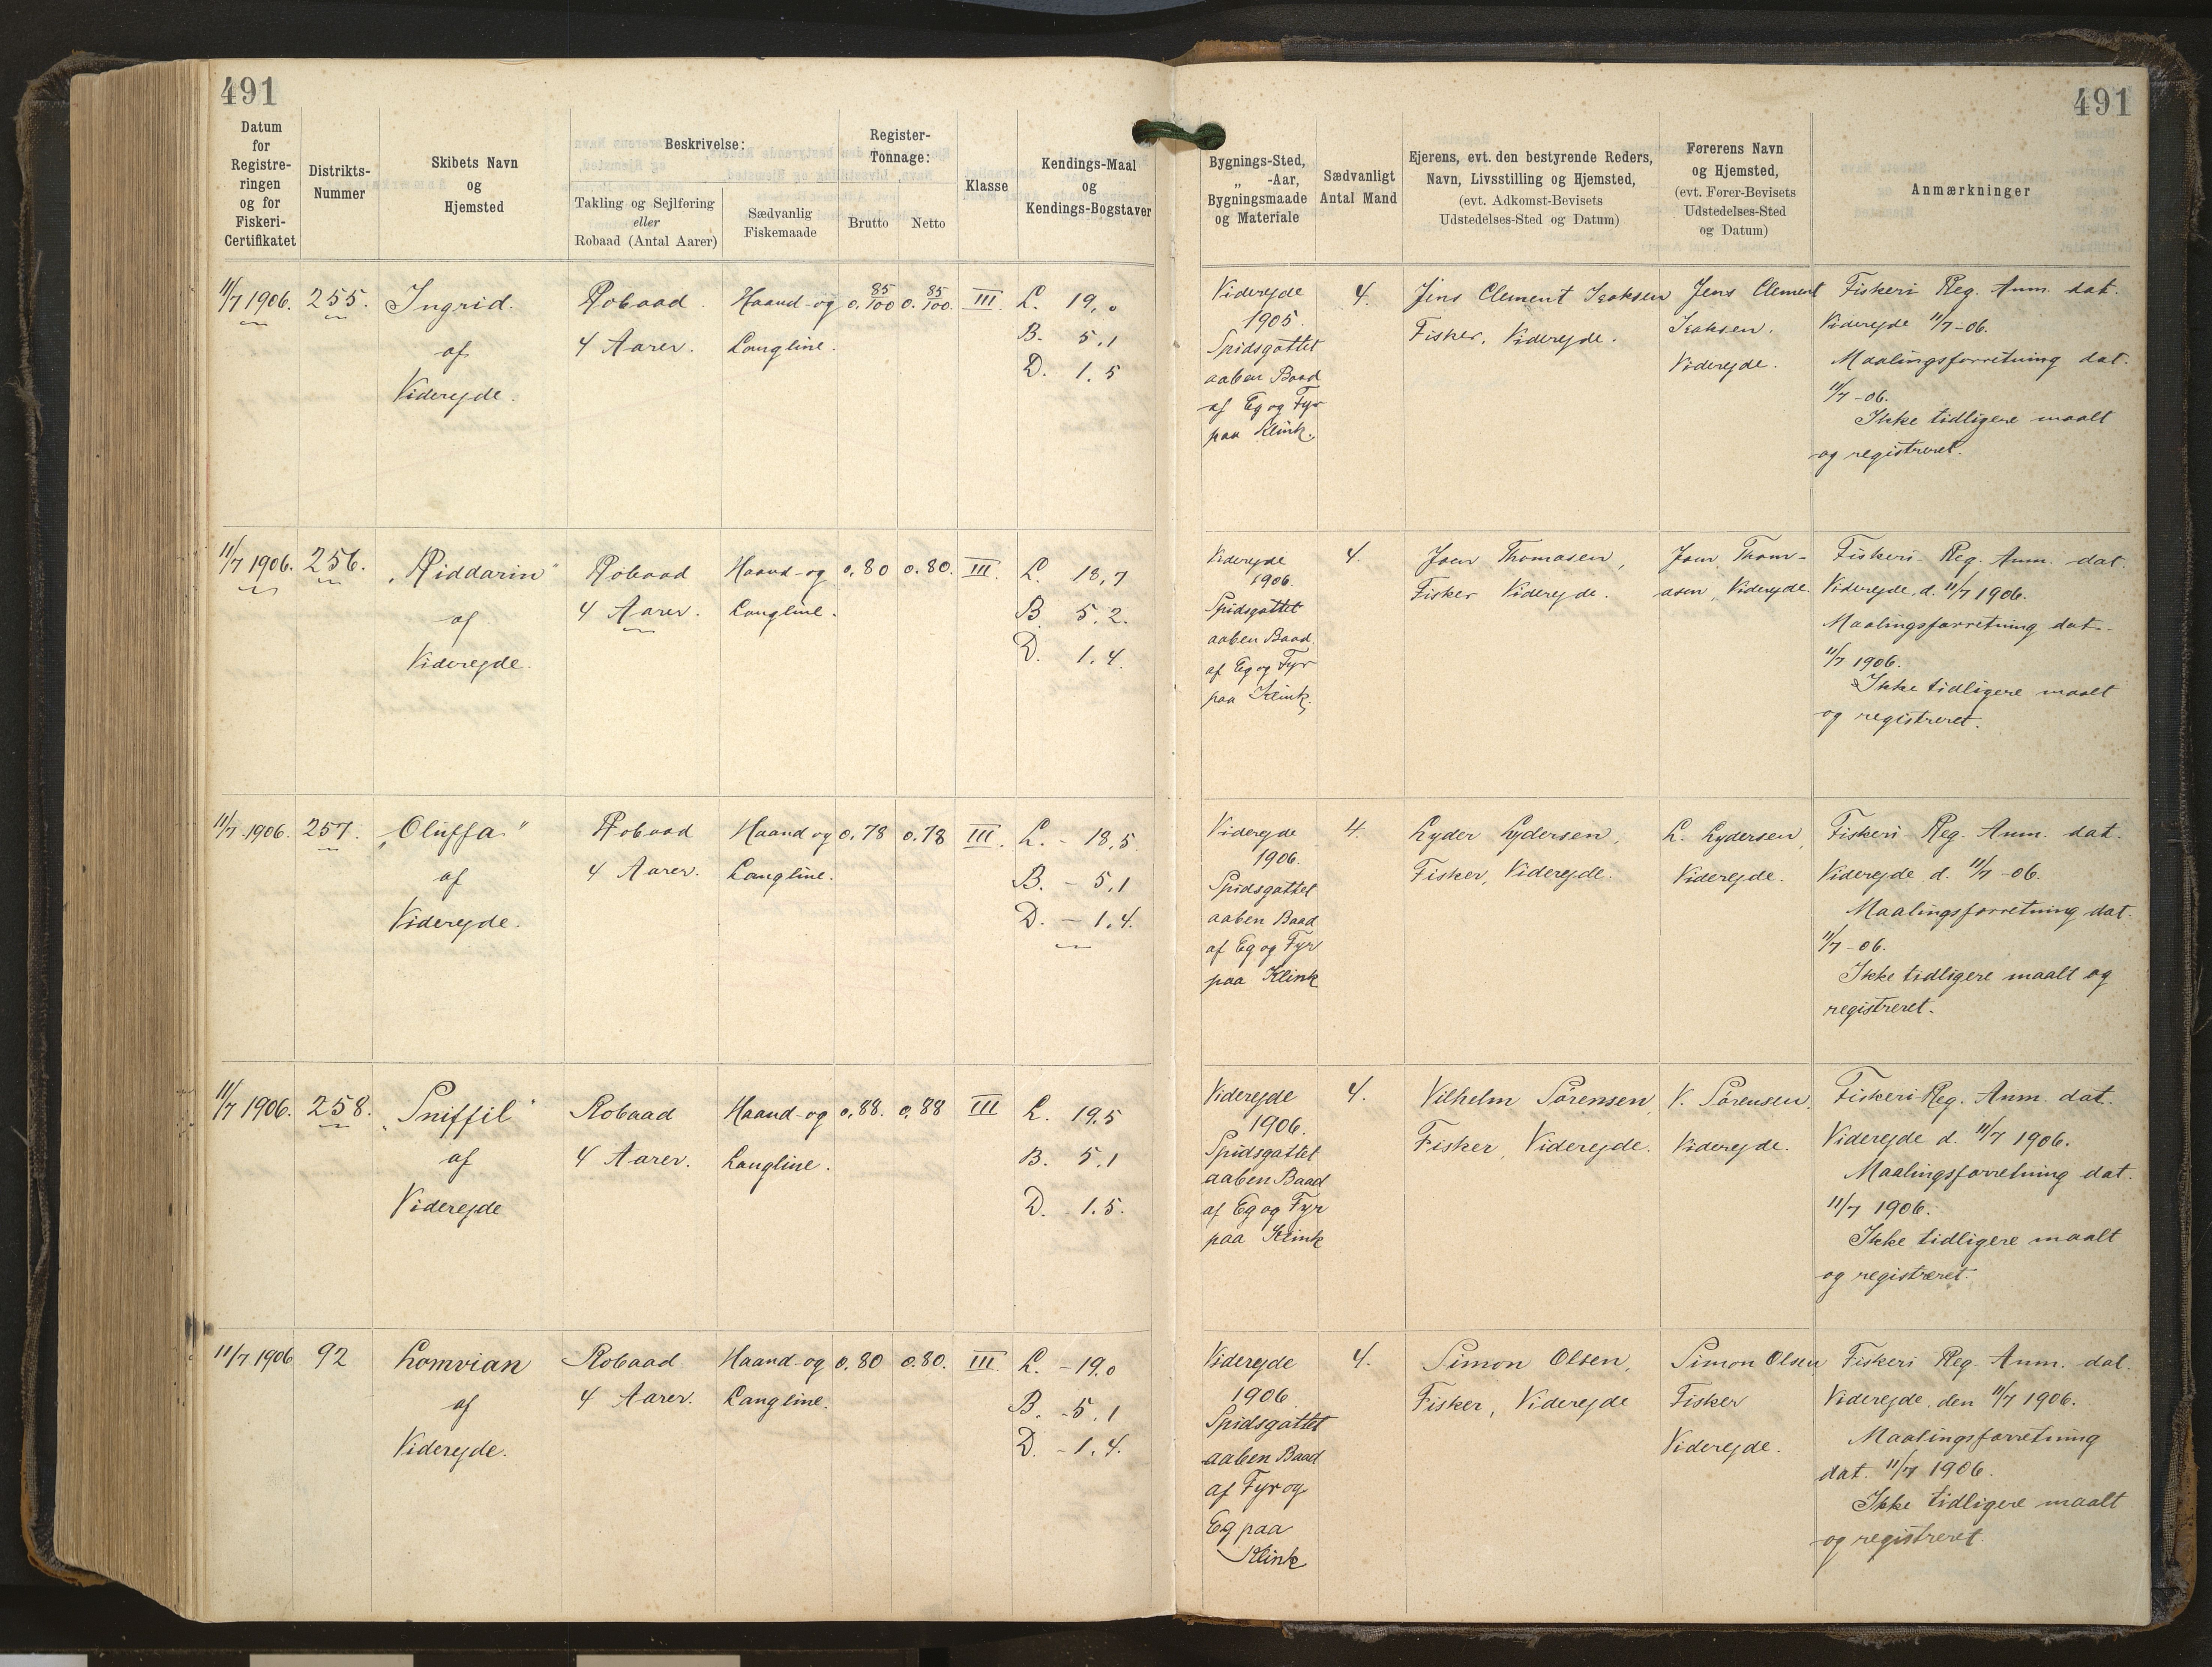 491
491
Datum
for
Registre-
ringen
og for
Fiskeri-
Certifikatet
Distrikts-
Nummer
Skibets Navn
og
Hjemsted
Beskrivelse:
Takling og Sejlføring
eller
Robaad (Antal Aarer)
Sædvanlig
Fiskemaade
Register-
Tonnage:
Brutto
Netto
Klasse
Kendings-Maal
og
Kendings-Bogstaver
Bygnings-Sted,
„ -Aar,
Bygningsmaade
og Materiale
Sædvanligt
Antal Mand
Ejerens, evt. den bestyrende Reders,
Navn, Livsstilling og Hjemsted,
(evt. Adkomst-Bevisets
Udstedelses-Sted og Datum)
Førerens Navn
og Hjemsted,
(evt. Fører-Bevisets
Udstedelses-Sted
og Datum)
Anmærkninger
11/7 1906.
255.
Ingrid.
af
Viderejde.
Robaad.
4 Aarer.
Haand- og
Langline.
0. 85/100
0. 85/100.
III.
L. 19,0
B. 5,1
D. 1.5
Viderejde
1905.
Spidsgattet
aaben Baad
af Eg og Fyr
paa Klink.
4.
Jens Clement Isaksen
Fisker, Viderejde.
Jens Clement
Isaksen.
Viderejde.
Fiskeri Reg. Anm. dat.
Viderejde 11/7-06.
Maalingsforretning dat.
11/7-06.
Ikke tidligere maalt
og registreret.
11/7 1906.
256.
„Riddarin"
af
Viderejde.
Robaad
4 Aarer.
Haand- og
Langline.
0,80
0.80.
III.
L. 18,7
B. 5.2.
D. 1.4.
Viderejde
1906.
Spidsgattet
aaben Baad.
af Eg og Fyr
paa Klink.
4.
Joen Thomasen,
Fisker Viderejde.
Joen Thom-
asen, Viderejde.
Fiskeri- Reg. Anm. dat.
Viderejde, d. 11/7 1906.
Maalingsforretning dat.
11/7 1906.
Ikke tidligere maalt
og registreret.
11/7 1906.
257.
„Oluffa"
af
Viderejde.
Robaad
4 Aarer.
Haand og
Langline.
0.78
0.78
III.
L. - 18,5.
B. - 5,1
D. - 1,4.
Viderejde
1906.
Spidsgattet
aaben Baad
af Eg og Fyr
paa Klink
4.
Lyder Lydersen,
Fisker, Viderejde.
L. Lydersen,
Viderejde.
Fiskeri- Reg. Anm. dat.
Viderejde d. 11/7-06.
Maalingsforretning dat.
11/7-06.
Ikke tidligere maalt og
registreret.
11/7 1906.
258.
„Sniffil"
af
Viderejde
Robaad
4 Aarer.
Haand- og
Langline.
0,88.
0,88
III
L. 19,5
B. 5,1
D. 1.5.
Viderejde
1906.
Spidsgattet
aaben Baad
af Eg og Fyr
paa Klink
4.
Vilhelm Sørensen,
Fisker, Viderejde.
V. Sørensen,
Viderejde.
Fiskeri Reg. Anm. dat.
Viderejde d. 11/7 1906.
Maalingsforretning dat.
11/7 1906.
Ikke tidligere maalt
og registreret.
11/7 1906
92
Lomvian
af
Viderejde.
Robaad
4 Aarer.
Haand- og
Langline.
0.80
0.80.
III.
L. - 19.0
B. - 5,1
D. - 1.4.
Viderejde
1906
Spidsgattet
aaben Baad
af Fyr og
Eg paa
Klink
4.
Simon Olsen,
Fisker, Viderejde
Simon Olsen
Fisker
Viderejde.
Fiskeri Reg. Anm. dat.
Viderejde, den 11/7 1906.
Maalingsforretning
dat. 11/7 1906.
Ikke tidligere maalt
og registreret.